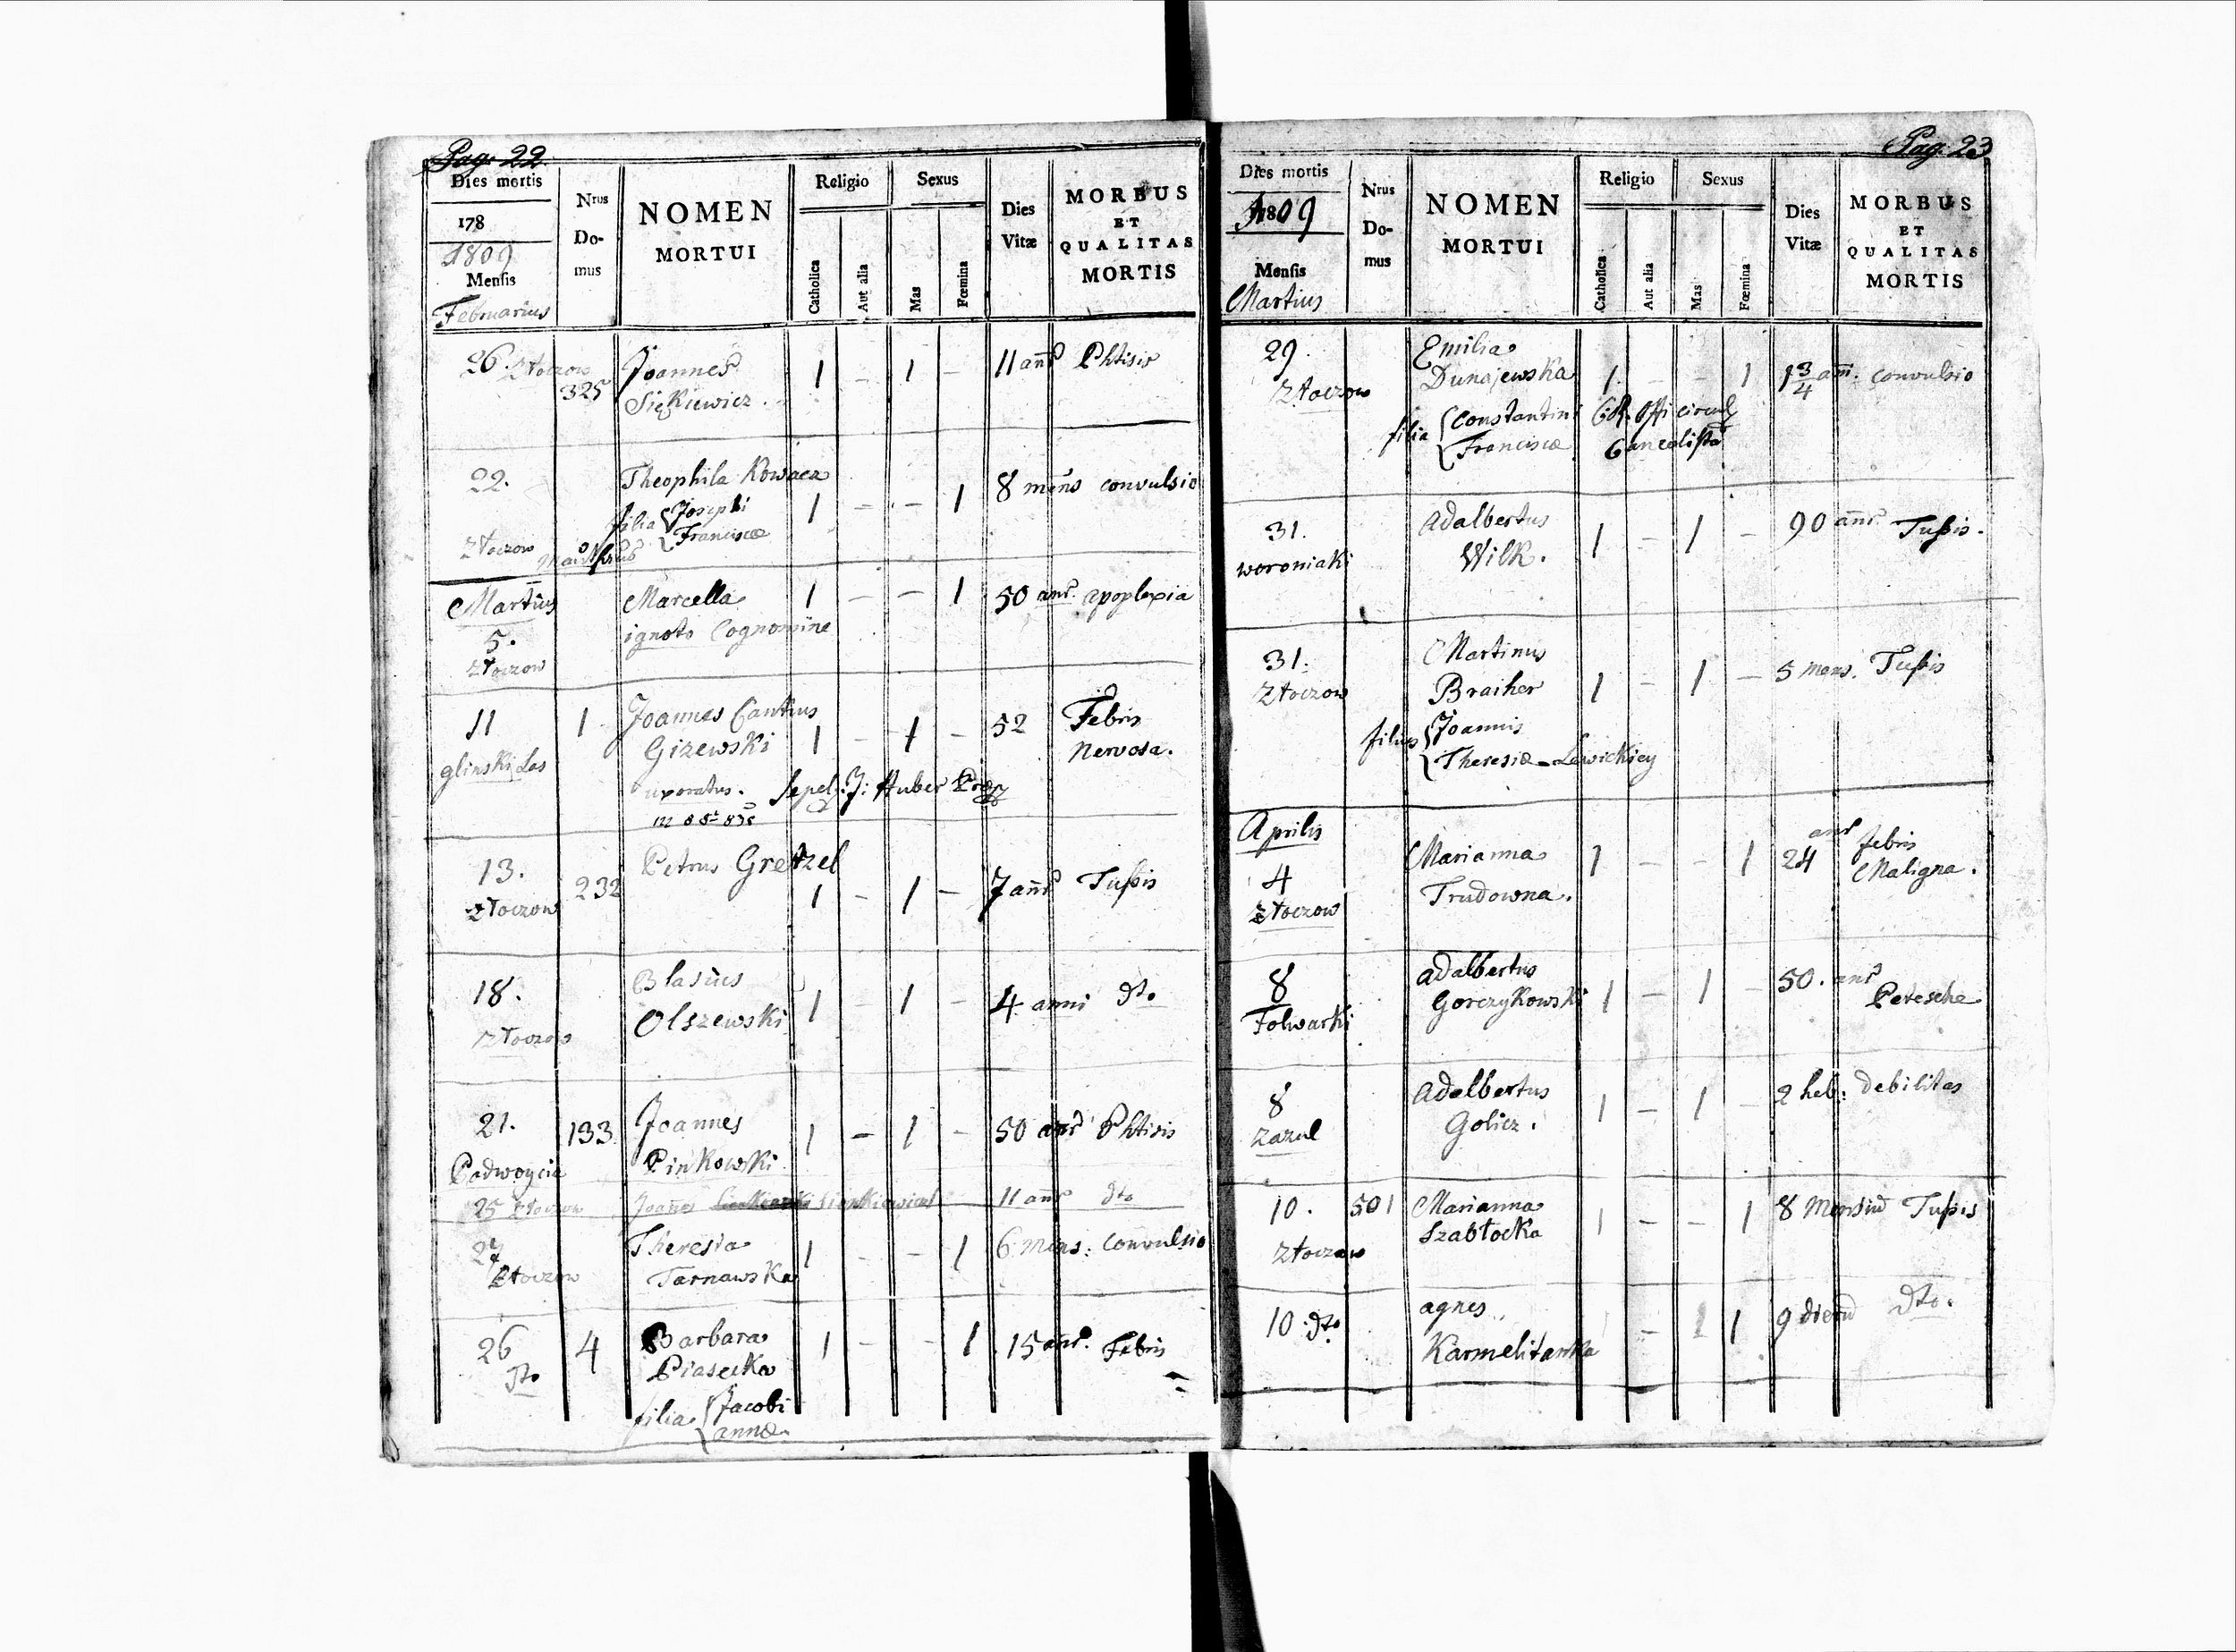 Pag. 22
Dies mortis
178
1809
Mensis
Februarius
Nrus
Do-
mus
NOMEN
MORTUI
Religio
Catholica
Aut alia
Sexus
Mas
Fœmina
Dies
Vitæ
MORBUS
ET
QUALITAS
MORTIS
26. Złoczow 325 Joannes 1 - 1 - 11 ann Phtisis
Siękiewicz.
22. Theophila Kowacz 1 - - 1 8 mens convulsio
filia Josephi
Złoczow Franciscæ
Martius Marcella 1 - - 1 50 anr. apoplexia
5. ignoto Cognomine
Złoczow
11 1 Joannes Cantius 52 Febris
glinski Las Gizewski 1 - 1 - Nervosa.
uxoratus. Sepel. J: Huber
13. 232 Petrus Gretzel 7 ann Tussis
Złoczow 1 - 1 -
18. Blasius
Złoczow Olszewski 1 - 1 - 4 anni dto
21. 133. Joannes 1 - 1 - 50 anr Phtisis
Podwoycie Pinkowski
25 Złoczow Joañes Sienkiewicz 11 anr dto
27 Theresia 1 - - 1 6 Mens: convulsio
Złoczow Tarnawska
26 4 Barbara 1 - - 1 15 anr. Febris
dto Piasecka
filia Jacobi
annæ.
Pag. 23
Dies mortis
1809
Mensis
Martius
Nrus
Do-
mus
NOMEN
MORTUI
Religio
Catholica
Aut alia
Sexus
Mas
Fœmina
Dies
Vitæ
MORBUS
ET
QUALITAS
MORTIS
29. Emilia
Złoczow Dunajewska 1. - - 1 1 3/4 am: convulsio
filia Constantini
Franciscæ
31. Adalbertus 90 anr. Tussis.
woroniaki Wilk. 1 - 1 -
31. Martinus 5 mens. Tussis
Złoczow Braiher 1 - 1 -
filius Joannis
Theresiæ - Lewickiey
Aprilis
4 Marianna 1 - - 1 24 anr febris
Złoczow Trudowna. Maligna.
8 adalbertus 50. anr
Folwarki Gorczykowski 1 - 1 - Petesche
8 adalbertus 1 - 1 - 2 heb: debilitas
Zazul Golicz.
10. 501 Marianna 1 - - 1 8 Mensiu Tussis
Złoczow Szabłocka
10 dto agnes - 1 1 9 dieru dto.
Karmelitanka